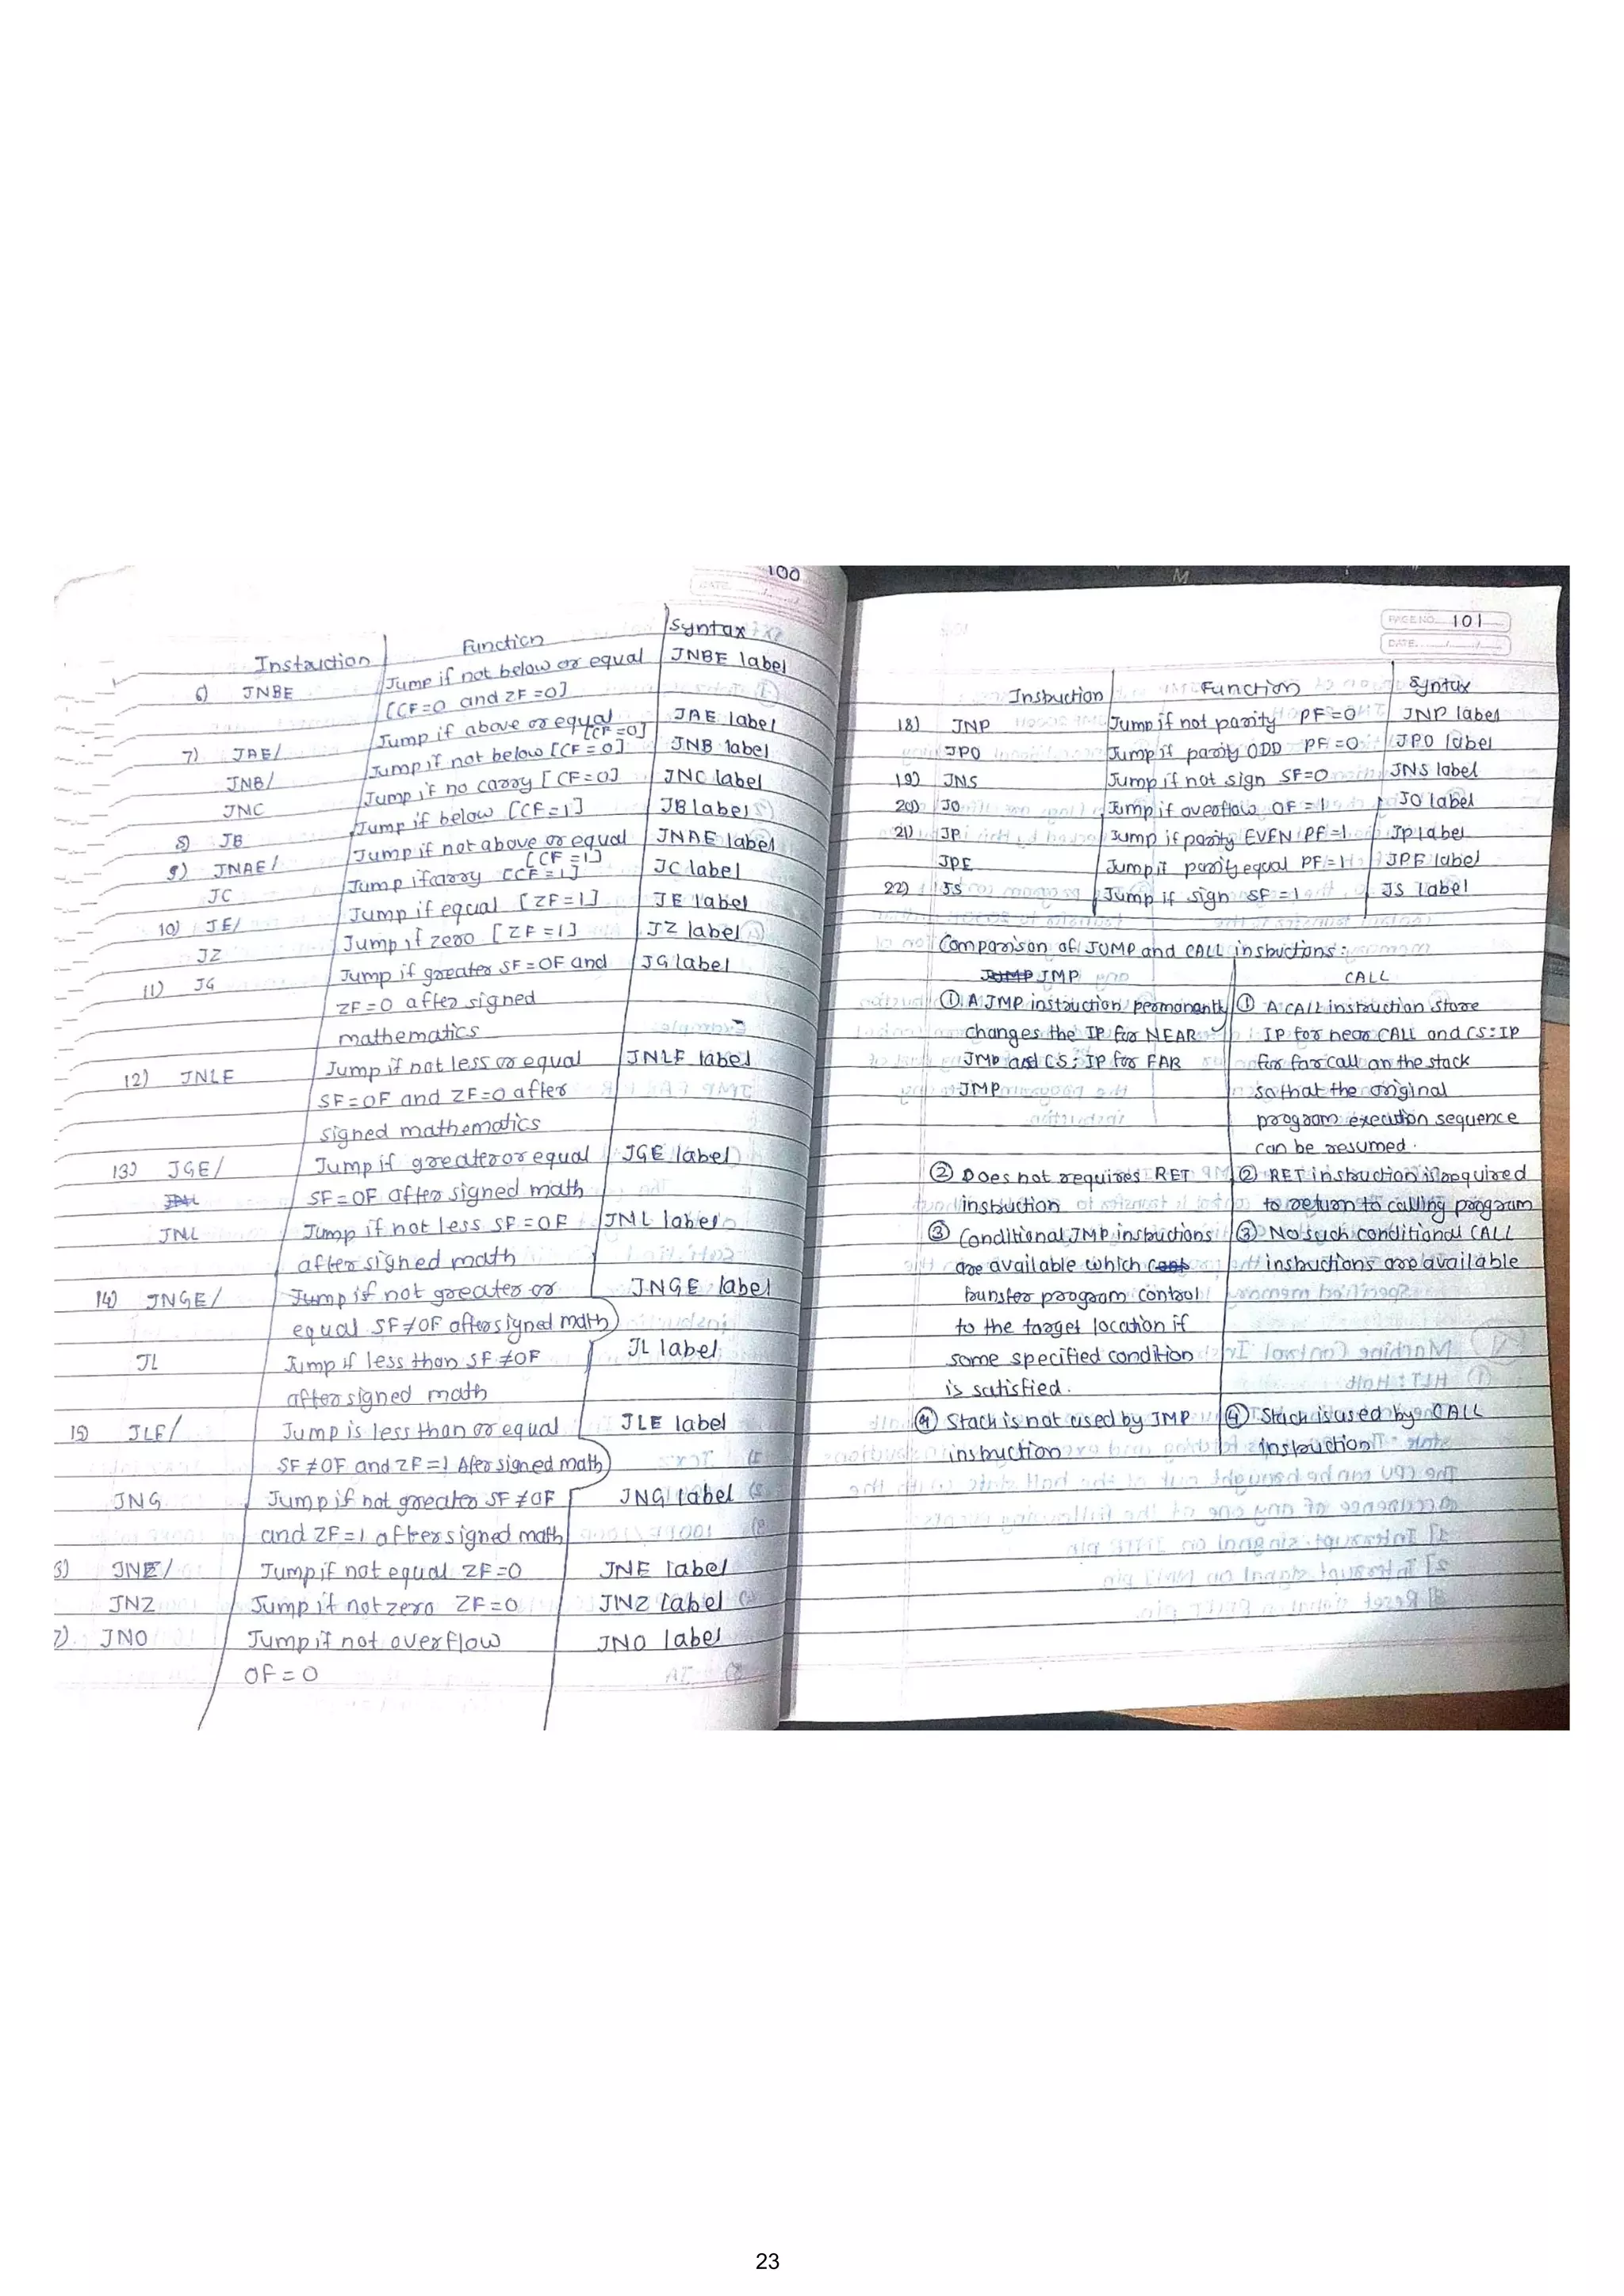 100
DATE
Instruction Function Syntax
6) JNBE Jump if not below or equal JNBE label
[CF=0 and ZF=0]
7) JAE/ Jump if above or equal JAE label
[CF=0]
JNB/ Jump if not below [CF=0] JNB label
JNC Jump if no carry [CF=0] JNC label
8) JB Jump if below [CF=1] JB label
9) JNAE/ Jump if not above or equal JNAE label
[CF=1]
JC Jump if carry [CF=1] JC label
10) JE/ Jump if equal [ZF=1] JE label
JZ Jump if zero [ZF=1] JZ label
11) JG Jump if greater SF=OF and JG label
ZF=0 after signed
mathematics
12) JNLE Jump if not less or equal JNLE label
SF=OF and ZF=0 after
signed mathematics
13) JGE/ Jump if greater or equal JGE label
SF=OF after signed math
JNL Jump if not less SF=OF JNL label
after signed math
14) JNGE/ Jump if not greater or JNGE label
equal SF≠OF after signed math
JL Jump if less than SF≠OF JL label
after signed math
15) JLE/ Jump is less than or equal JLE label
SF≠OF and ZF=1 After signed math
JNG Jump if not greater SF≠OF JNG label
and ZF=1 after signed math
JNE/ Jump if not equal ZF=0 JNE label
JNZ Jump if not zero ZF=0 JNZ label
JNO Jump if not overflow JNO label
OF=0
PAGE NO. 101
DATE
Instruction Function Syntax
18) JNP Jump if not parity PF=0 JNP label
JPO Jump if parity ODD PF=0 JPO label
19) JNS Jump if not sign SF=0 JNS label
20) JO Jump if overflow OF=1 JO label
21) JP Jump if parity EVEN PF=1 JP label
JPE Jump if parity equal PF=1 JPE label
22) JS Jump if sign SF=1 JS label
Comparison of JUMP and CALL instructions:
JMP CALL
① A JMP instruction permanantly ① A CALL instruction store
changes the IP for NEAR IP for near CALL and CS:IP
JMP and CS:IP for FAR for far call on the stack
JMP so that the original
program execution sequence
can be resumed.
② Does not requires RET ② RET instruction is required
instruction to return to calling program
③ Conditional JMP instructions ③ No such conditional CALL
are available which instructions are available
transfer program control
to the target location if
some specified condition
is satisfied.
④ Stack is not used by JMP ④ Stack is used by CALL
instruction instruction
23